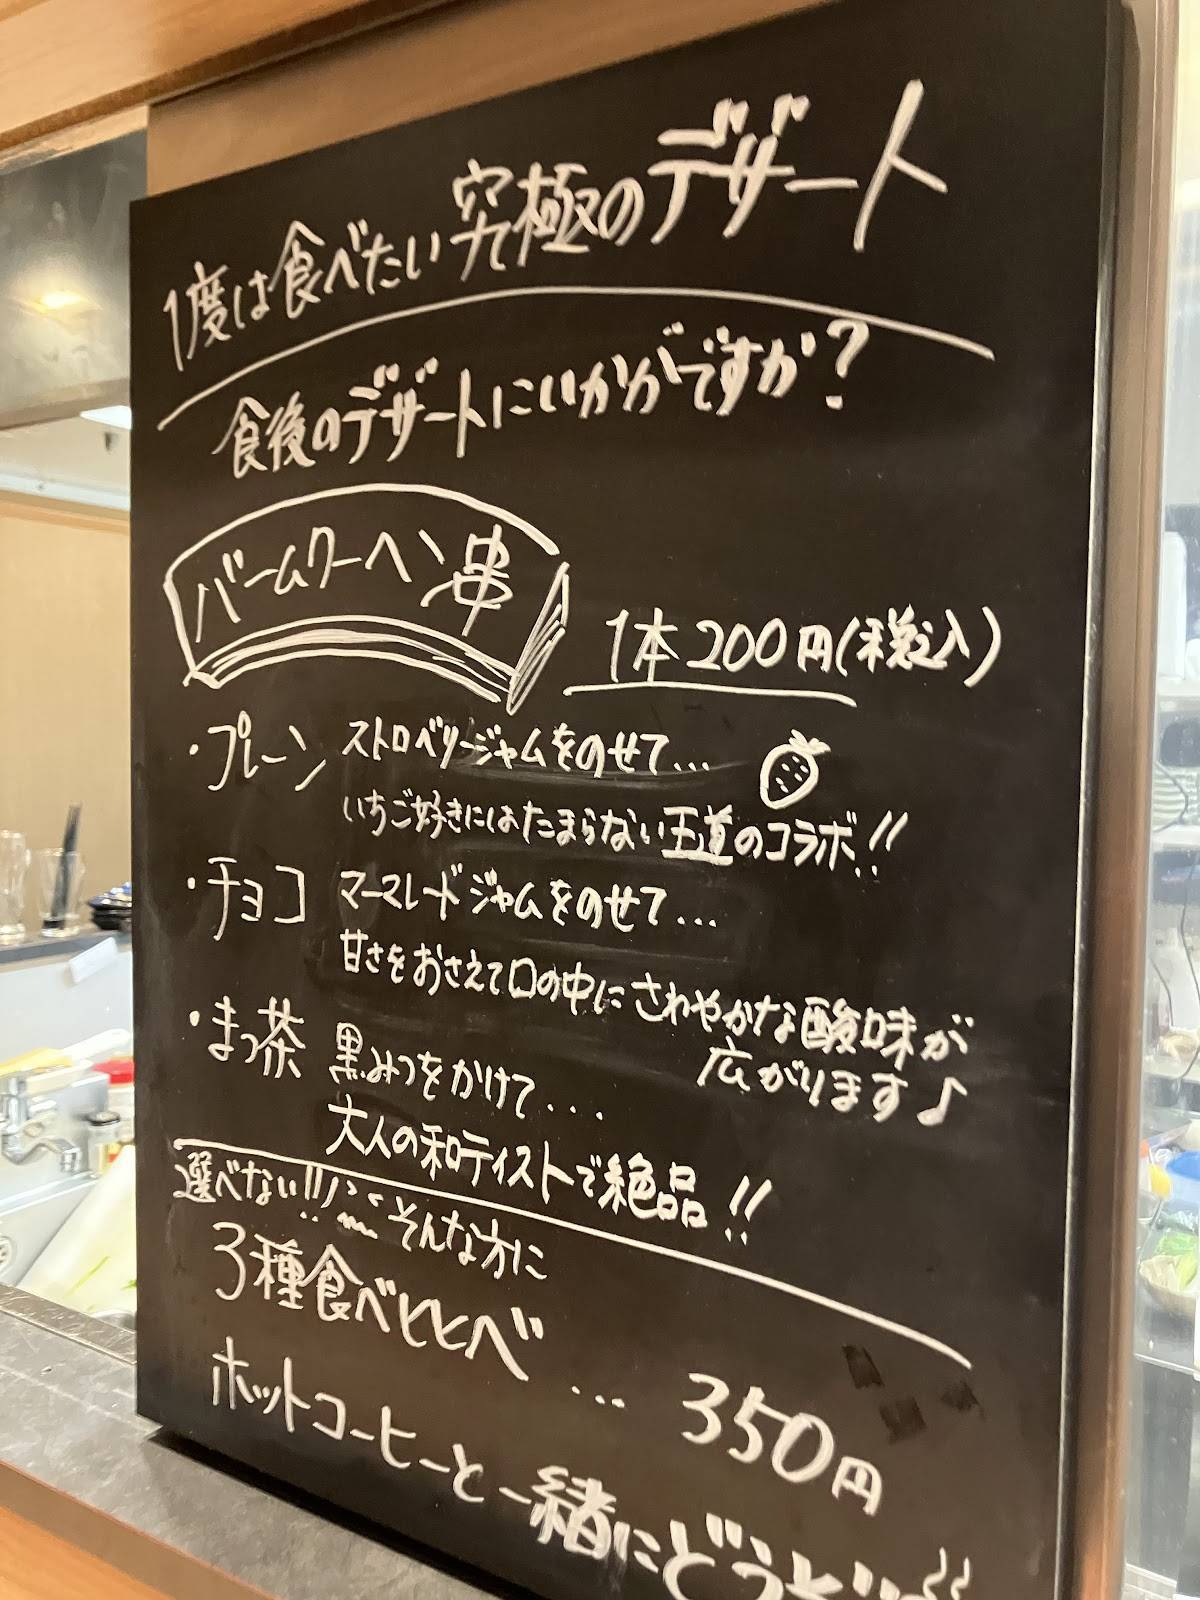 1度は食べたい究極のデザート
食後のデザートにいかがですか?
バームクーヘン串
1本200円(税込)
・プレーン ストロベリージャムをのせて...
いちご好きにはたまらない王道のコラボ!!
・チョコ マーマレードジャムをのせて...
甘さをおさえて口の中にさわやかな酸味が
広がります♪
・まっ茶 黒みつをかけて...
大人の和ティストで絶品!!
選べない!! そんな方に
3種食べヒヒベ ... 350円
ホットコーヒーと一緒にどうぞ